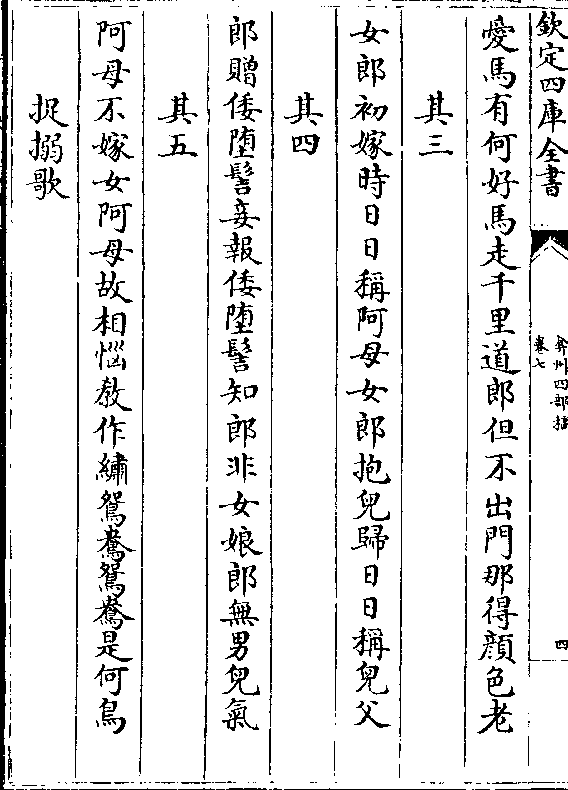 欽定四庫全書
弇州四部稿
卷七
四
愛馬有何好馬走千里道郎但不出門那得顔色老
其三
女郎初嫁時日日稱阿母女郎抱兒歸日日稱兒父
其四
郎贈倭墮髻妾報倭墮髻知郎非女娘郎無男兒氣
其五
阿母不嫁女阿母故相惱教作繡鴛鴦鴛鴦是何鳥
捉搦歌